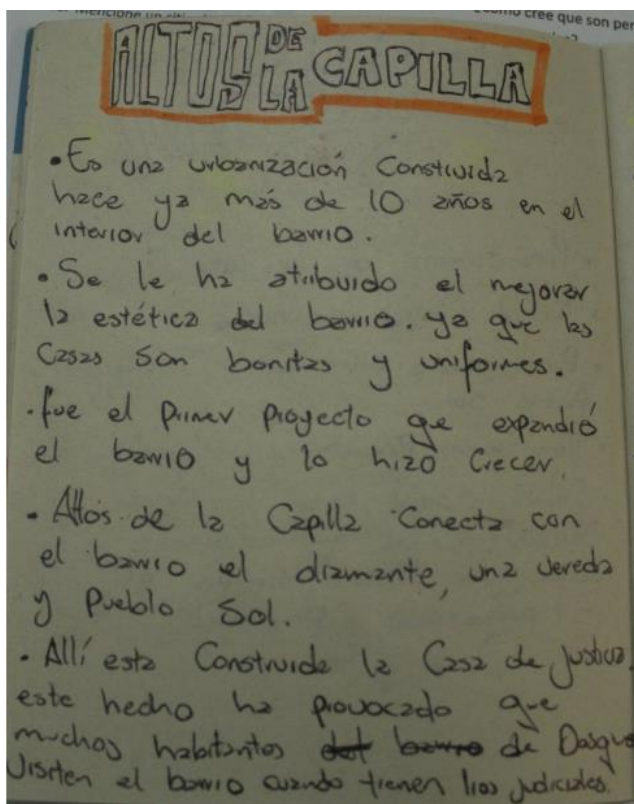 Mencione un
cree que son per
ALTOS DE LA CAPILLA
• Es una urbanización Construida
hace ya más de 10 años en el
interior del barrio.
• Se le ha atribuido el mejorar
la estética del barrio. ya que las
Casas son bonitas y uniformes.
• fue el primer proyecto que expandió
el barrio y lo hizo Crecer.
• Altos de la Capilla Conecta con
el barrio el diamante, una vereda
y Pueblo Sol.
• Allí esta Construida la Casa de justicia.
este hecho ha provocado que
muchos habitantes del barrio de Dosque
Visiten el barrio cuando tienen lios judiciales.